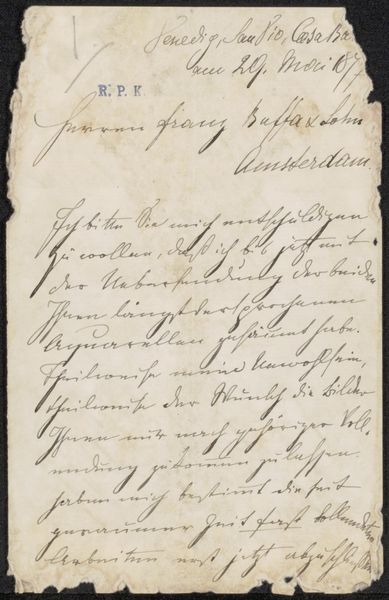 Venedig, San Pio, Casa Ba
am 29. Mai 187
R. P. K.
Herren Franz Buffa & Sohn
Amsterdam.
Ich bitte Sie mich entschuldigen
zu wollen, daß ich bis jetzt mit
der Uebersendung der beiden
Ihnen längst versprochenen
Aquarellen gesäumt habe.
Theilweise meine Unwohlsein,
theilweise der Wunsch die Bilder
Ihnen nur nach gehöriger Voll-
endung zukommen zu lassen
haben mich bestimmt die seit
geraumer Zeit fast vollendeten
Arbeiten erst jetzt abzuschließen